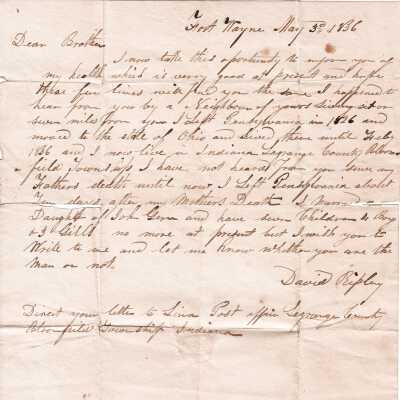 Fort Wayne May 3d 1836
Dear Brother
I now take this opportunity to inform you of
my health which is verry good at present and hope
these few lines will find you the same I happened to
hear from you by a Neighbour of yours living at or
seven miles from you I Left Pensylvania in 1826 and
moved to the state of Ohio and lived there until Feby
1836 and I now live in Indiana Legrange County Bloom
field Township I have not heard from you since my
Fathers death until now, I Left Pensylvania about
Ten days after my Mothers Death I Married a
Daughter of Job Gern and have seven Children 4 Boys
& 3 Girls no more at present but I wish you to
Write to me and let me know whether you are the
Man or not.
David Ripley
Direct your letter to Lima Post affice Legrange County
Bloomfield Township Indiana